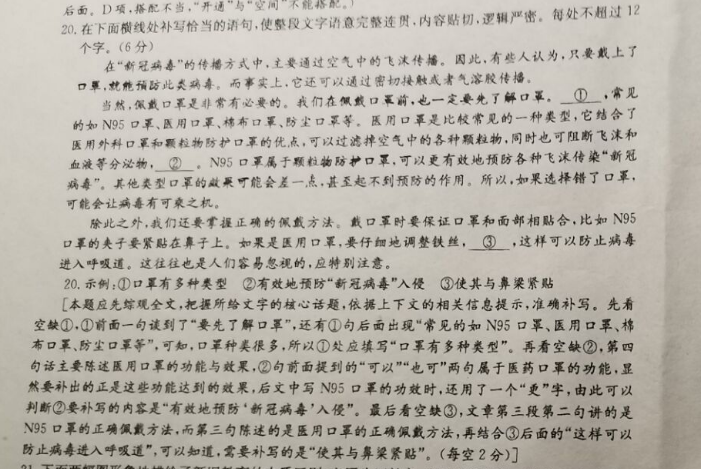 后面。D)项,搭配不当,“开通”与“空间”不能搭配。)
20. 在下面横线处补写恰当的语句,使整段文字语意完整连贯,内容贴切,逻辑严密。每处不超过 12
个字。(6 分)
在“新冠病毒”的传播方式中,主要通过空气中的飞沫传播。因此,有些人认为,只要戴上了
口罩,就能预防此类病毒。而事实上,它还可以通过密切接触或者气溶胶传播。
当然,佩戴口罩是非常有必要的。我们在佩戴口罩前,也一定要先了解口罩。 ① ,常见
的如 N95 口罩、医用口罩、棉布口罩、防尘口罩等。医用口罩是比较常见的一种类型,它结合了
医用外科口罩和颗粒物防护口罩的优点,可以过滤掉空气中的各种颗粒物,同时也可阻断飞沫和
血液等分泌物, ② 。N95 口罩属于颗粒物防护口罩,可以更有效地预防各种飞沫传染“新冠
病毒”。其他类型口罩的效果可能会差一点,甚至起不到预防的作用。所以,如果选择错了口罩,
可能会让病毒有可乘之机。
除此之外,我们还要掌握正确的佩戴方法。戴口罩时要保证口罩和面部相贴合,比如 N95
口罩的夹子要紧贴在鼻子上。如果是医用口罩,要仔细地调整铁丝, ③ ,这样可以防止病毒
进入呼吸道。这往往也是人们容易忽视的,应特别注意。
20. 示例:①口罩有多种类型 ②有效地预防“新冠病毒”入侵 ③使其与鼻梁紧贴
[本题应先综观全文,把握所给文字的核心话题,依据上下文的相关信息提示,准确补写。先看
空缺①,①前面一句谈到了“要先了解口罩”,还有①句后面出现“常见的如 N95 口罩、医用口罩、棉
布口罩、防尘口罩等”,可知,口罩种类很多,所以①处应填写“口罩有多种类型”。再看空缺②,第四
句话主要陈述医用口罩的功能与效果,②句前面提到的“可以”“也可”两句属于医药口罩的功能,显
然要补出的正是这些功能达到的效果,后文中写 N95 口罩的功效时,还用了一个“更”字,由此可以
判断②要补写的内容是“有效地预防‘新冠病毒’入侵”。最后看空缺③,文章第三段第二句讲的是
N95 口罩的正确佩戴方法,而第三句陈述的是医用口罩的正确佩戴方法,再结合③后面的“这样可以
防止病毒进入呼吸道”,可以知道,需要补写的是“使其与鼻梁紧贴”。(每空 2 分)]